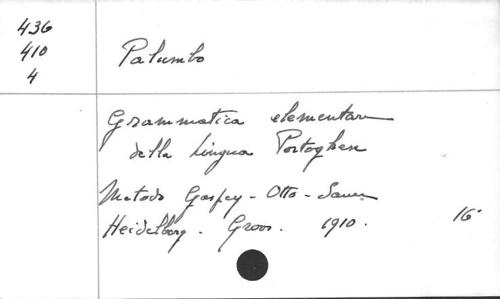 436
410
4
Palumbo
Grammatica elementare
della lingua Portoghese
Metodo Gaspey - Otto - Sauer
Heidelberg - Groos. 1910. 16°